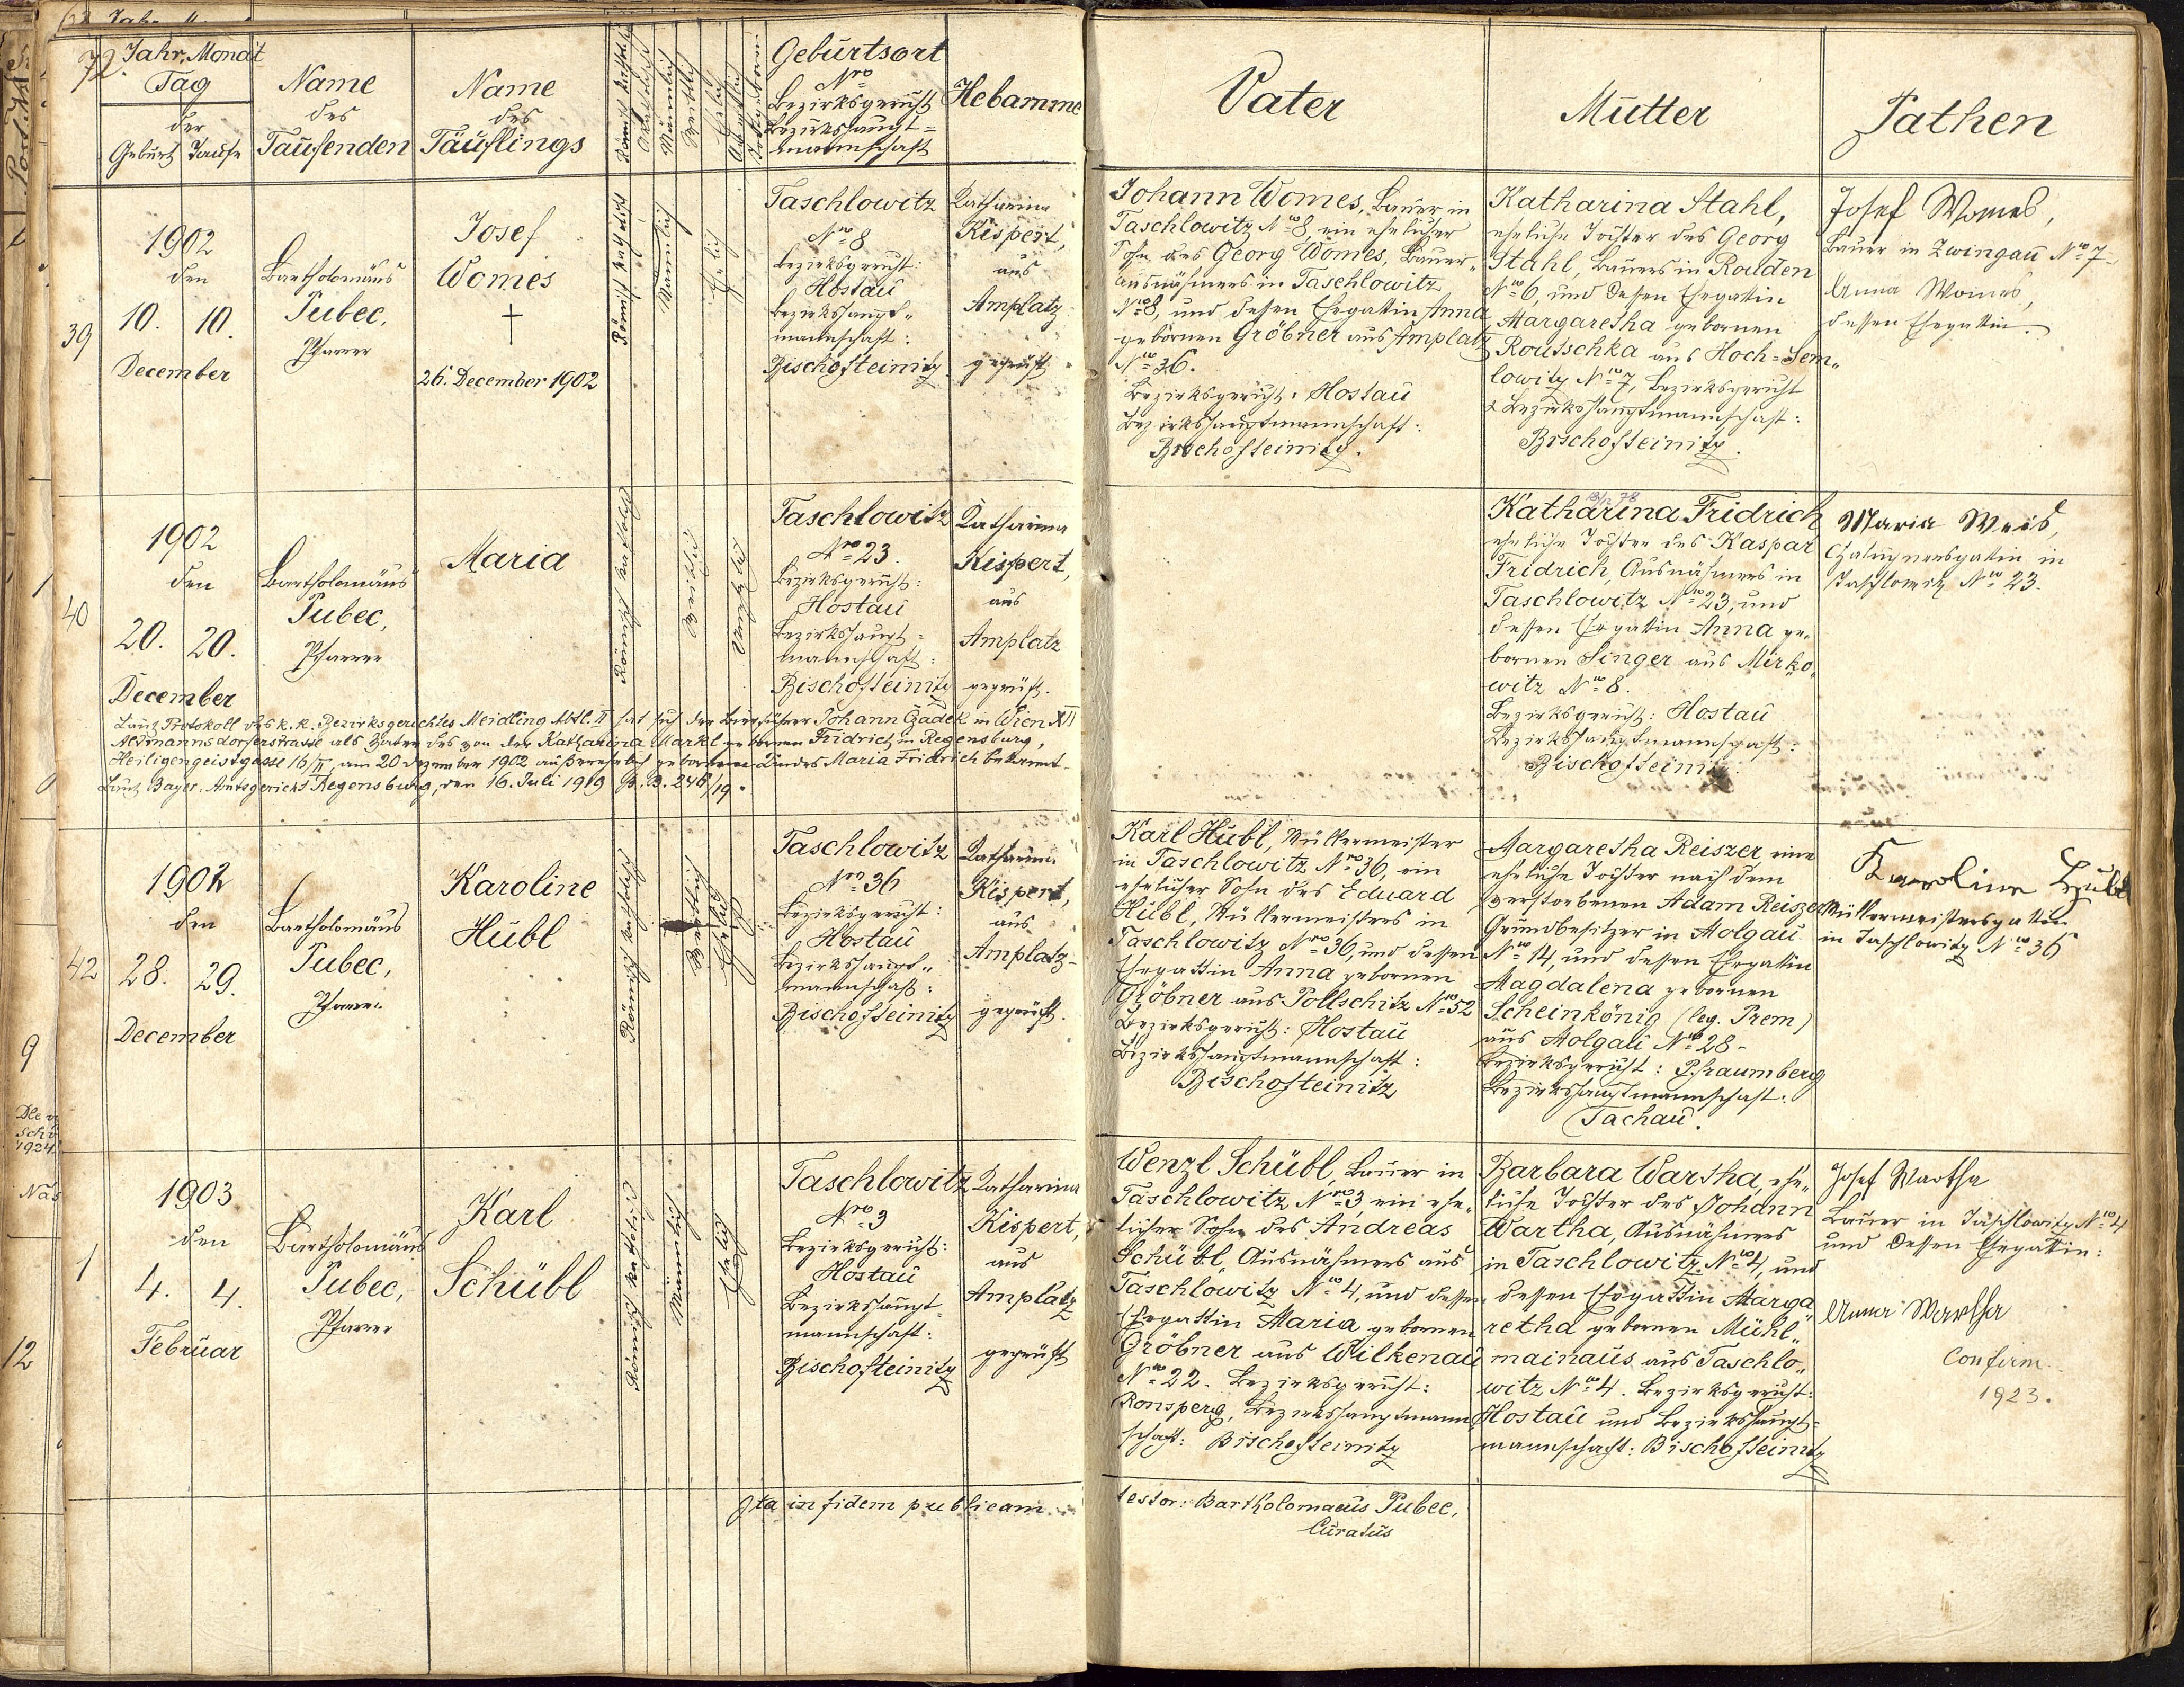 72.
Jahr, Monat
Tag
der
Geburt Taufe
Name
des
Taufenden
Name
des
Täuflings
Römisch katholisch
Akatholisch
Männlich
Weiblich
Ehelich
Geburtsort
Nro
Bezirksgericht
Bezirkshaupt=
mannschaft
Hebamme
Vater
Mutter
Pathen
39
1902
den
10. 10.
December
Bartholomäus
Pubec,
Pfarrer
Josef
Womes
+
26. December 1902
Römisch katholisch
Männlich
Ehelich
Taschlowitz
Nro 8
Bezirksgericht:
Hostau
Bezirkshaupt=
mannschaft:
Bischofteinitz
Katharina
Kispert,
aus
Amplatz
geprüft
Johann Womes, Bauer in
Taschlowitz Nro 8, ein ehelicher
Sohn des Georg Womes, Bauer=
ausnähmers in Taschlowitz
Nro 8, und dessen Ehegattin Anna
gebornen Gröbner aus Amplatz
Nro 36.
Bezirksgericht: Hostau
Bezirkshauptmannschaft:
Bischofteinitz.
Katharina Stahl,
eheliche Tochter des Georg
Stahl, Bauers in Rouden
Nro 6, und dessen Ehegattin
Margaretha gebornen
Routschka aus Hoch=Sem„
lowitz Nro 7, Bezirksgericht
& Bezirkshauptmannschaft:
Bischofteinitz.
Josef Womes,
Bauer in Zwingau Nro 7
Anna Womes,
dessen Ehegattin.
40
1902
den
20. 20.
December
Bartholomäus
Pubec,
Pfarrer
Maria
Römisch katholisch
Weiblich
Unehelich
Taschlowitz
Nro 23.
Bezirksgericht:
Hostau
Bezirkshaupt=
mannschaft:
Bischofteinitz
Katharina
Kispert,
aus
Amplatz
geprüft.
Katharina Fridrich
eheliche Tochter des Kaspar
Fridrich, Ausnähmers in
Taschlowitz Nro 23, und
dessen Ehegattin Anna ge„
bornen Singer aus Mirko„
witz Nro 8.
Bezirksgericht: Hostau
Bezirkshauptmannschaft:
Bischofteinitz
Maria Weis,
in
Taschlowitz Nro 23.
Laut Protokoll des k. k. Bezirksgerichtes Meidling Abtl. II hat sich der Bierführer Johann Czadek in Wien XII
Altmannsdorferstrasse als Vater des von der Katharina Markl gebornen Fridrich in Regensburg,
Heiligengeistgasse 16/II, am 20 Dezember 1902 außerehelich geborenen Kindes Maria Fridrich bekannt.
Laut Bayer. Amtsgericht Regensburg, den 16. Juli 1919 248/19.
42
1902
den
28. 29.
December
Bartholomäus
Pubec,
Pfarrer
Karoline
Hübl
Römisch katholisch
Weiblich
Ehelich
Taschlowitz
Nro 36
Bezirksgericht:
Hostau
Bezirkshaupt„
mannschaft:
Bischofteinitz
Katharina
Kispert,
aus
Amplatz
geprüft.
Karl Hübl, Müllermeister
in Taschlowitz Nro 36, ein
ehelicher Sohn des Eduard
Hübl, Müllermeisters in
Taschlowitz Nro 36, und dessen
Ehegattin Anna gebornen
Gröbner aus Pollschitz Nro 52
Bezirksgericht: Hostau
Bezirkshauptmannschaft:
Bischofteinitz
Margaretha Reiszer, eine
eheliche Tochter nach dem
verstorbenen Adam Reiszer
Grundbesitzer in Molgau
Nro 14, und dessen Ehegattin
Magdalena gebornen
Scheinkönig (leg. Prem)
aus Molgau Nro 28.
Bezirksgericht: Pfraumberg
Bezirkshauptmannschaft:
Tachau.
Karoline Hübl
Müllermeistersgattin
in Taschlowitz Nro 36
1
1903
den
4. 4.
Februar
Bartholomäus
Pubec,
Pfarrer
Karl
Schübl
Römisch katholisch
Männlich
Ehelich
Taschlowitz
Nro 3
Bezirksgericht:
Hostau
Bezirkshaupt=
mannschaft:
Bischofteinitz
Katharina
Kispert,
aus
Amplatz
geprüft
Wenzl Schübl, Bauer in
Taschlowitz Nro 3, ein ehe„
licher Sohn des Andreas
Schübl, Ausnähmers aus
Taschlowitz Nro 4, und dessen
Ehegattin Maria gebornen
Gröbner aus Wilkenau
Nro 22. Bezirksgericht:
Ronsperg, Bezirkshauptmann
schaft: Bischofteinitz
Barbara Wartha, ehe„
liche Tochter des Johann
Wartha, Ausnähmers
in Taschlowitz Nro 4, und
dessen Ehegattin Marga„
retha gebornen Mühl„
mainaus aus Taschlo„
witz Nro 4. Bezirksgericht:
Hostau und Bezirkshaupt=
mannschaft: Bischofteinitz
Josef Wartha
Bauer in Taschlowitz Nro 4
und dessen Ehegattin:
Anna Wartha
Confirm.
1923.
Ita in fidem publicam
testor: Bartholomaeus Pubec,
Curatus